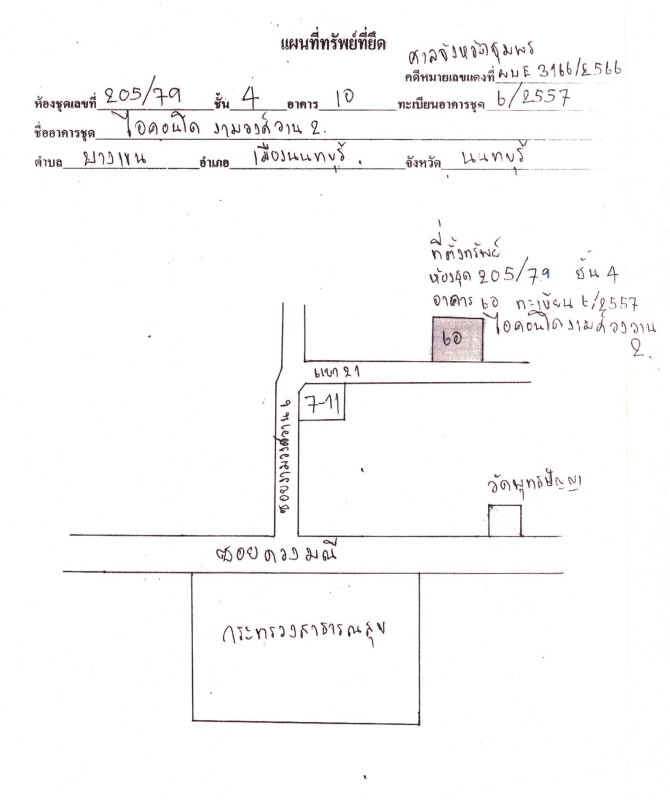 แผนที่ทรัพย์ที่ยึด
ศาลจังหวัดชุมพร
คดีหมายเลขแดงที่ ผบE 3166/2566
ห้องชุดเลขที่ 205/79 ชั้น 4 อาคาร 10 ทะเบียนอาคารชุด 6/2557
ชื่ออาคารชุด ไอคอนโด งามวงศ์วาน 2.
ตำบล บางเขน อำเภอ เมืองนนทบุรี. จังหวัด นนทบุรี
ที่ตั้งทรัพย์
ห้องชุด 205/79 ชั้น 4
อาคาร เอ ทะเบียน 6/2557
ไอคอนโดงามวงศ์วาน
2.
เอ
แยก 21
7-11
ซอยงามวงศ์วาน 6
วัดพุทธปัญญา
ซอยดวงมณี
กระทรวงสาธารณสุข